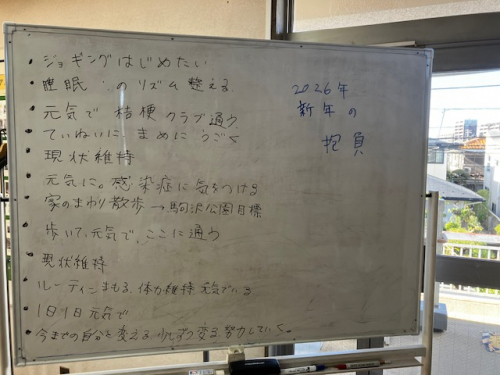 ・ジョギングはじめたい
・睡眠・のリズム整える
・元気で 桔梗クラブ通う
ていねいに、まめに うごく
・現状維持
・元気に。感染症に気をつける
・家のまわり散歩→駒沢公園目標
・歩いて、元気で、ここに通う
・現状維持
・ルーティンまもる、体力維持 元気でいる
・1日1日元気で
・今までの自分を変える 少しずつ変る 努力していく。
2026年
新年の
抱負